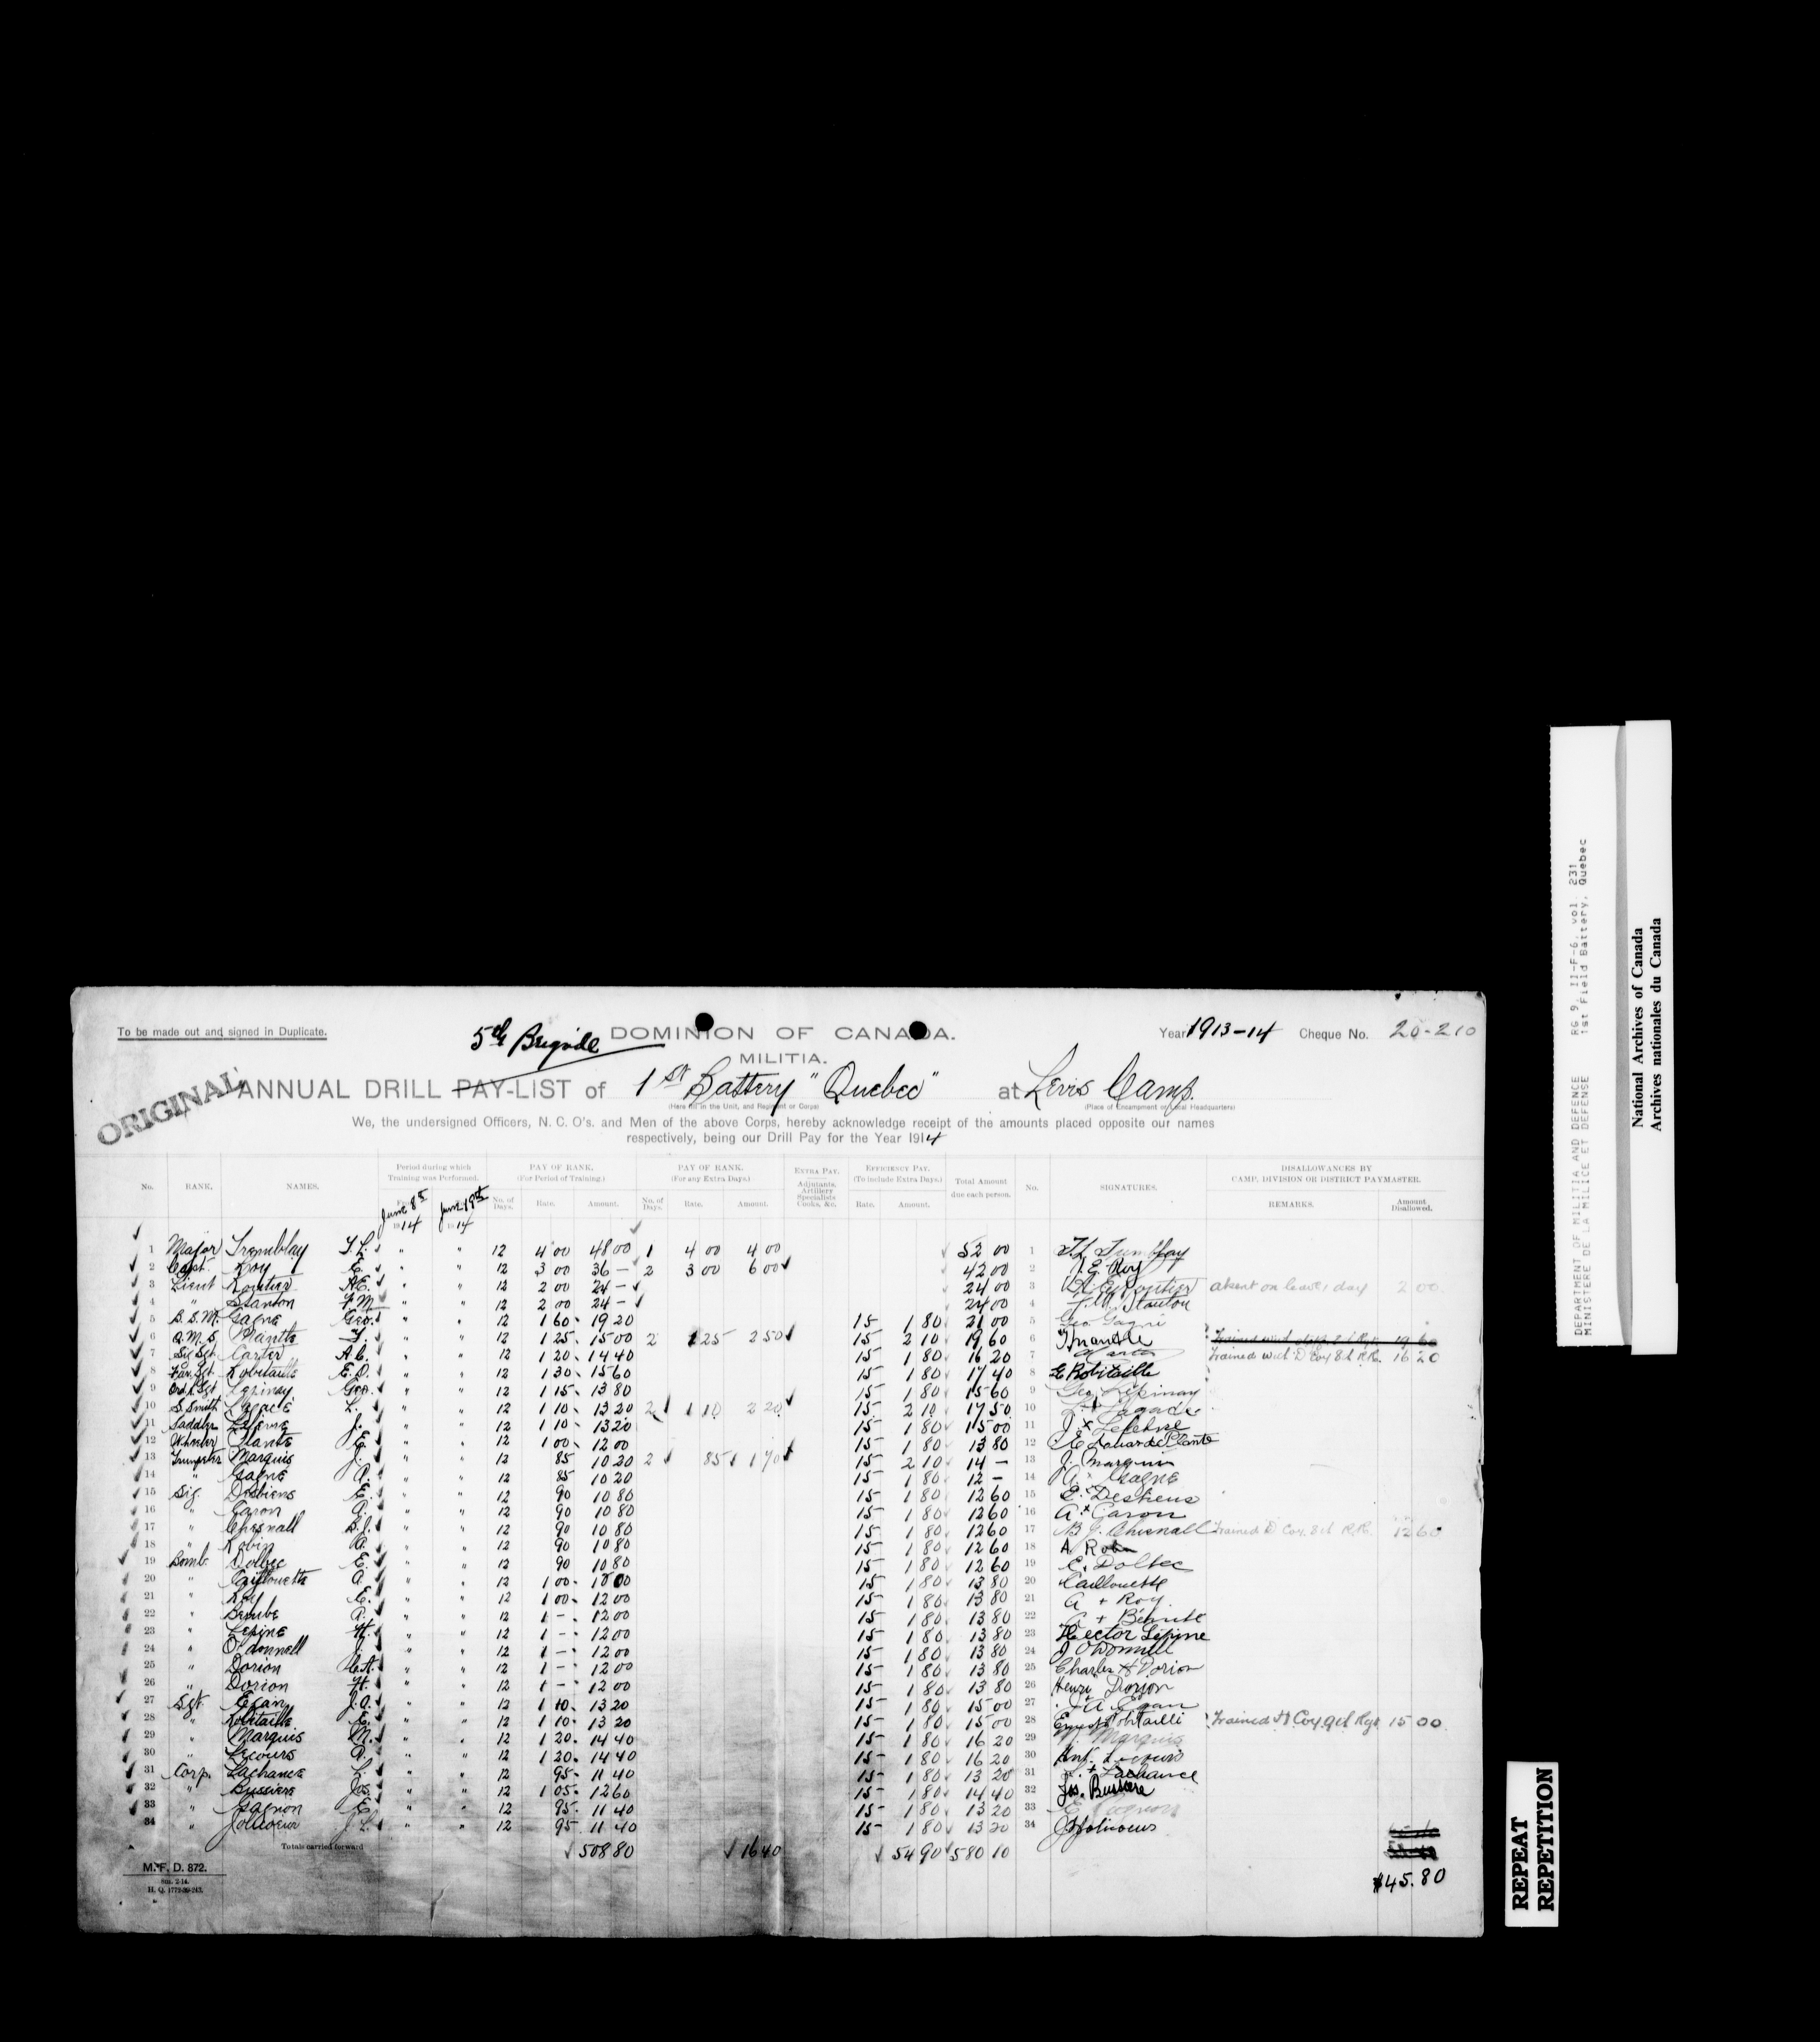 To be made out and signed in Duplicate.
5th Brigade DOMINION OF CANADA. Year 1913-14 Cheque No. 20-210
MILITIA.
ORIGINAL
ANNUAL DRILL PAY-LIST of 1st Battery "Quebec" at Levis Camp.
(Here fill in the Unit, and Regiment or Corps) (Place of Encampment or Local Headquarters)
We, the undersigned Officers, N. C. O's. and Men of the above Corps, hereby acknowledge receipt of the amounts placed opposite our names
respectively, being our Drill Pay for the Year 1914
No. RANK. NAMES. Period during which Training was Performed. PAY OF RANK. (For Period of Training.) PAY OF RANK. (For any Extra Days.) EXTRA PAY. Adjutants, Artillery Specialists Cooks, &c. EFFICIENCY PAY. (To include Extra Days.) Total Amount due each person. No. SIGNATURES. DISALLOWANCES BY CAMP, DIVISION OR DISTRICT PAYMASTER.
June 8th 14 June 19th 14 No. of Days. Rate. Amount. No. of Days. Rate. Amount. Rate. Amount. REMARKS. Amount Disallowed.
1 Major Tremblay T.L. " " 12 4 00 48 00 1 4 00 4 00 52 00 1 T.L. Tremblay
2 Capt. Roy E. " " 12 3 00 36 - 2 3 00 6 00 42 00 2 J.E. Roy
3 Lieut Routier A.E. " " 12 2 00 24 - 24 00 3 A.E. Routier absent on leave 1 day 2 00
4 " Stanton F.M. " " 12 2 00 24 - 24 00 4 F.M. Stanton
5 B.S.M. Gagne Geo. " " 12 1 60 19 20 15 1 80 21 00 5 Geo. Gagni
6 Q.M.S. Plante " " 12 1 25 15 00 2 1 25 2 50 15 2 10 19 60 6 19 60
7 Sig Sgt Carter A.C. " " 12 1 20 14 40 15 1 80 16 20 7 Carter Trained with D Coy 8th R.R. 16 20
8 Far. Sgt. Robitaille E.D. " " 12 1 30 15 60 15 1 80 17 40 8 E Robitaille
9 Ord. R. Sgt Lepinay Geo. " " 12 1 15 13 80 15 1 80 15 60 9 Geo. Lépinay
10 S. Smith Lagacé L. " " 12 1 10 13 20 2 1 10 2 20 15 2 10 17 50 10 L. + Lagacé
11 Saddler Lefebvre J. " " 12 1 10 13 20 15 1 80 15 00 11 J. x Lefebvre
12 Wheeler Plante E. " " 12 1 00 12 00 15 1 80 13 80 12 Edouard Plante
13 Trumpeter Marquis J. " " 12 85 10 20 2 85 1 70 15 2 10 14 - 13 J. Marquis
14 " Gagne A. " " 12 85 10 20 15 1 80 12 - 14 A. x Gagne
15 Sig. Desbiens E. " " 12 90 10 80 15 1 80 12 60 15 E. x Desbiens
16 " Caron A. " " 12 90 10 80 15 1 80 12 60 16 A. x Caron
17 " Chesnall B.J. " " 12 90 10 80 15 1 80 12 60 17 B.J. Chesnall Trained D Coy. 8th R.R. 12 60
18 " Robin A. " " 12 90 10 80 15 1 80 12 60 18 A Robin
19 Bomb. Dolbec E. " " 12 90 10 80 15 1 80 12 60 19 E. Dolbec
20 " Caillouette A. " " 12 1 00 15 1 80 13 80 20 Caillouette
21 " Roy E. " " 12 1 00 12 00 15 1 80 13 80 21 + Roy
22 " Berube A. " " 12 1 - 12 00 15 1 80 13 80 22 A + Bérubé
23 " Lepine H. " " 12 1 - 12 00 15 1 80 13 80 23 Hector Lépine
24 " O'donnell J. " " 12 1 - 12 00 15 1 80 13 80 24 J O'Donnell
25 " Dorion C.H. " " 12 1 - 12 00 15 1 80 13 80 25 Charles H Dorion
26 " Dorion H. " " 12 1 - 12 00 15 1 80 13 80 26 Henri Dorion
27 Sgt. Egan J.A. " " 12 1 10 13 20 15 1 80 15 00 27 J.A. Egan
28 " Robitaille E. " " 12 1 10 13 20 15 1 80 15 00 28 Ernest Robitailli Trained H Coy 9th Regt 15 00
29 " Marquis M. " " 12 1 20 14 40 15 1 80 16 20 29 M. Marquis
30 " Lecours A. " " 12 1 20 14 40 15 1 80 16 20 30 Lecours
31 Corp. Lachance L. " " 12 95 11 40 15 1 80 13 20 31 + Lachance
32 " Bussiere Jos. " " 12 1 05 12 60 15 1 80 14 40 32 Jos. Bussiere
33 " Gagnon E. " " 12 95 11 40 15 1 80 13 20 33 E Gagnon
34 " Jolicoeur J.L. " " 12 95 11 40 15 1 80 13 20 34 Jolicoeur
Totals carried forward 508 80 16 40 54 90 580 10
$45.80
M. F. D. 872.
8m. 2-14.
H. Q. 1772-39-243.
DEPARTMENT OF MILITIA AND DEFENCE RG 9, II-F-6, vol. 231
MINISTERE DE LA MILICE ET DEFENSE 1st Field Battery, Quebec
National Archives of Canada
Archives nationales du Canada
REPEAT
REPETITION